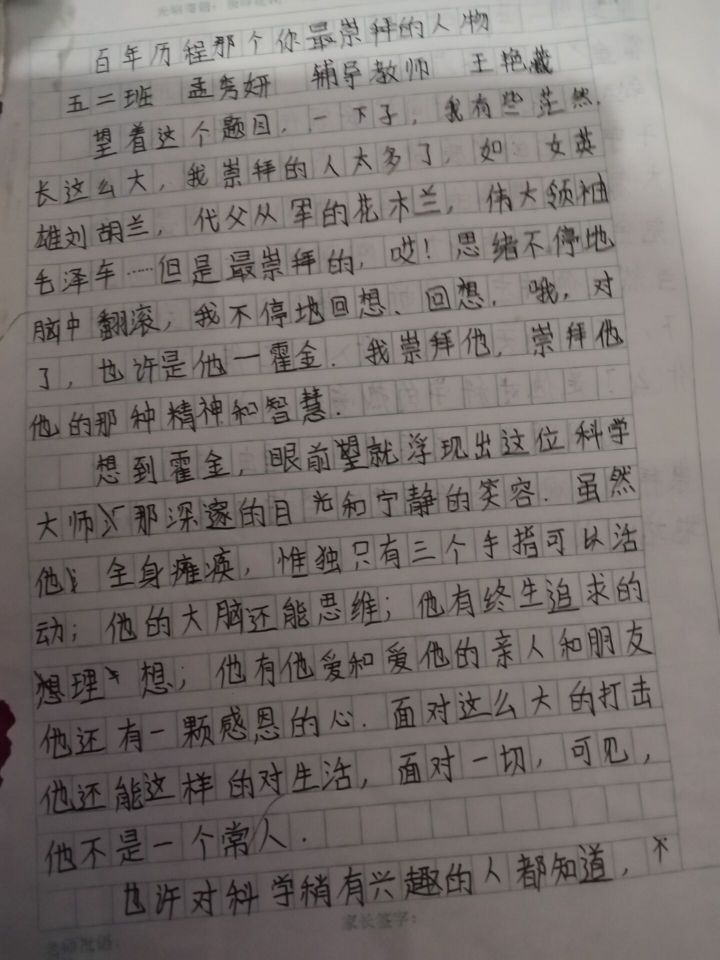 百年历程那个你最崇拜的人物
五二班 孟秀妍 辅导教师 王艳
望着这个题目，一下子，我有些茫然.
长这么大，我崇拜的人太多了，如 女英
雄刘胡兰，代父从军的花木兰，伟大领袖
毛泽东……但是最崇拜的，哎！思绪不停地
脑中翻滚，我不停地回想、回想，哦，对
了，也许是他一霍金.我崇拜他，崇拜他
他的那种精神和智慧.
想到霍金，眼前望就浮现出这位科学
大师那深邃的目光和宁静的笑容.虽然
他 全身瘫痪，惟独只有三个手指可以活
动；他的大脑还能思维；他有终生追求的
理想；他有他爱和爱他的亲人和朋友
他还有一颗感恩的心.面对这么大的打击
他还能这样的对生活，面对一切，可见，
他不是一个常人.
也许对科学稍有兴趣的人都知道，不
家长签字：
老师批语：